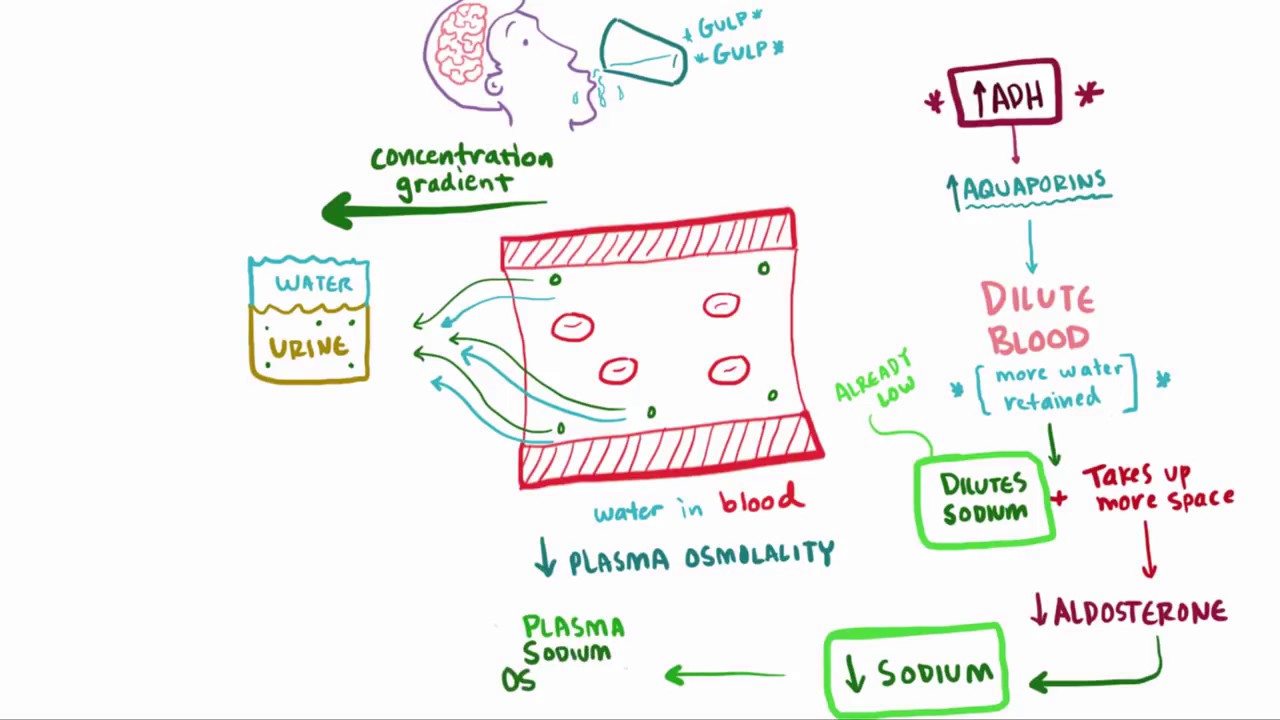 * GULP *
* GULP *
↑ ADH
* *
concentration
gradient
↑ AQUAPORINS
WATER
URINE
DILUTE
BLOOD
* [more water
retained] *
ALREADY
LOW
DILUTES
SODIUM
+
Takes up
more space
water in blood
↓ PLASMA OSMOLALITY
↓ ALDOSTERONE
↓ SODIUM
PLASMA
SODIUM
OS